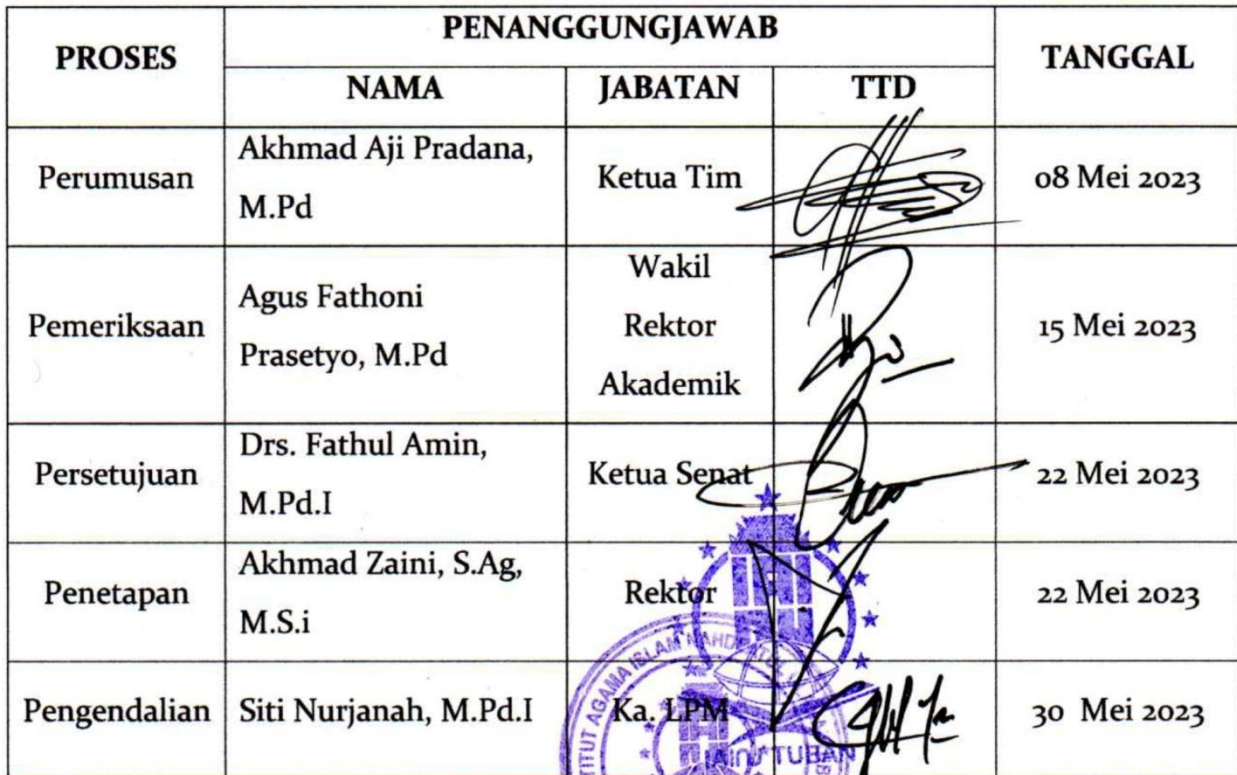 PROSES
PENANGGUNGJAWAB
TANGGAL
NAMA
JABATAN
TTD
Perumusan
Akhmad Aji Pradana,
M.Pd
Ketua Tim
08 Mei 2023
Pemeriksaan
Agus Fathoni
Prasetyo, M.Pd
Wakil
Rektor
Akademik
15 Mei 2023
Persetujuan
Drs. Fathul Amin,
M.Pd.I
Ketua Senat
22 Mei 2023
Penetapan
Akhmad Zaini, S.Ag,
M.S.i
Rektor
22 Mei 2023
Pengendalian
Siti Nurjanah, M.Pd.I
Ka. LPM
30 Mei 2023
AGAMA ISLAM
TUBAN